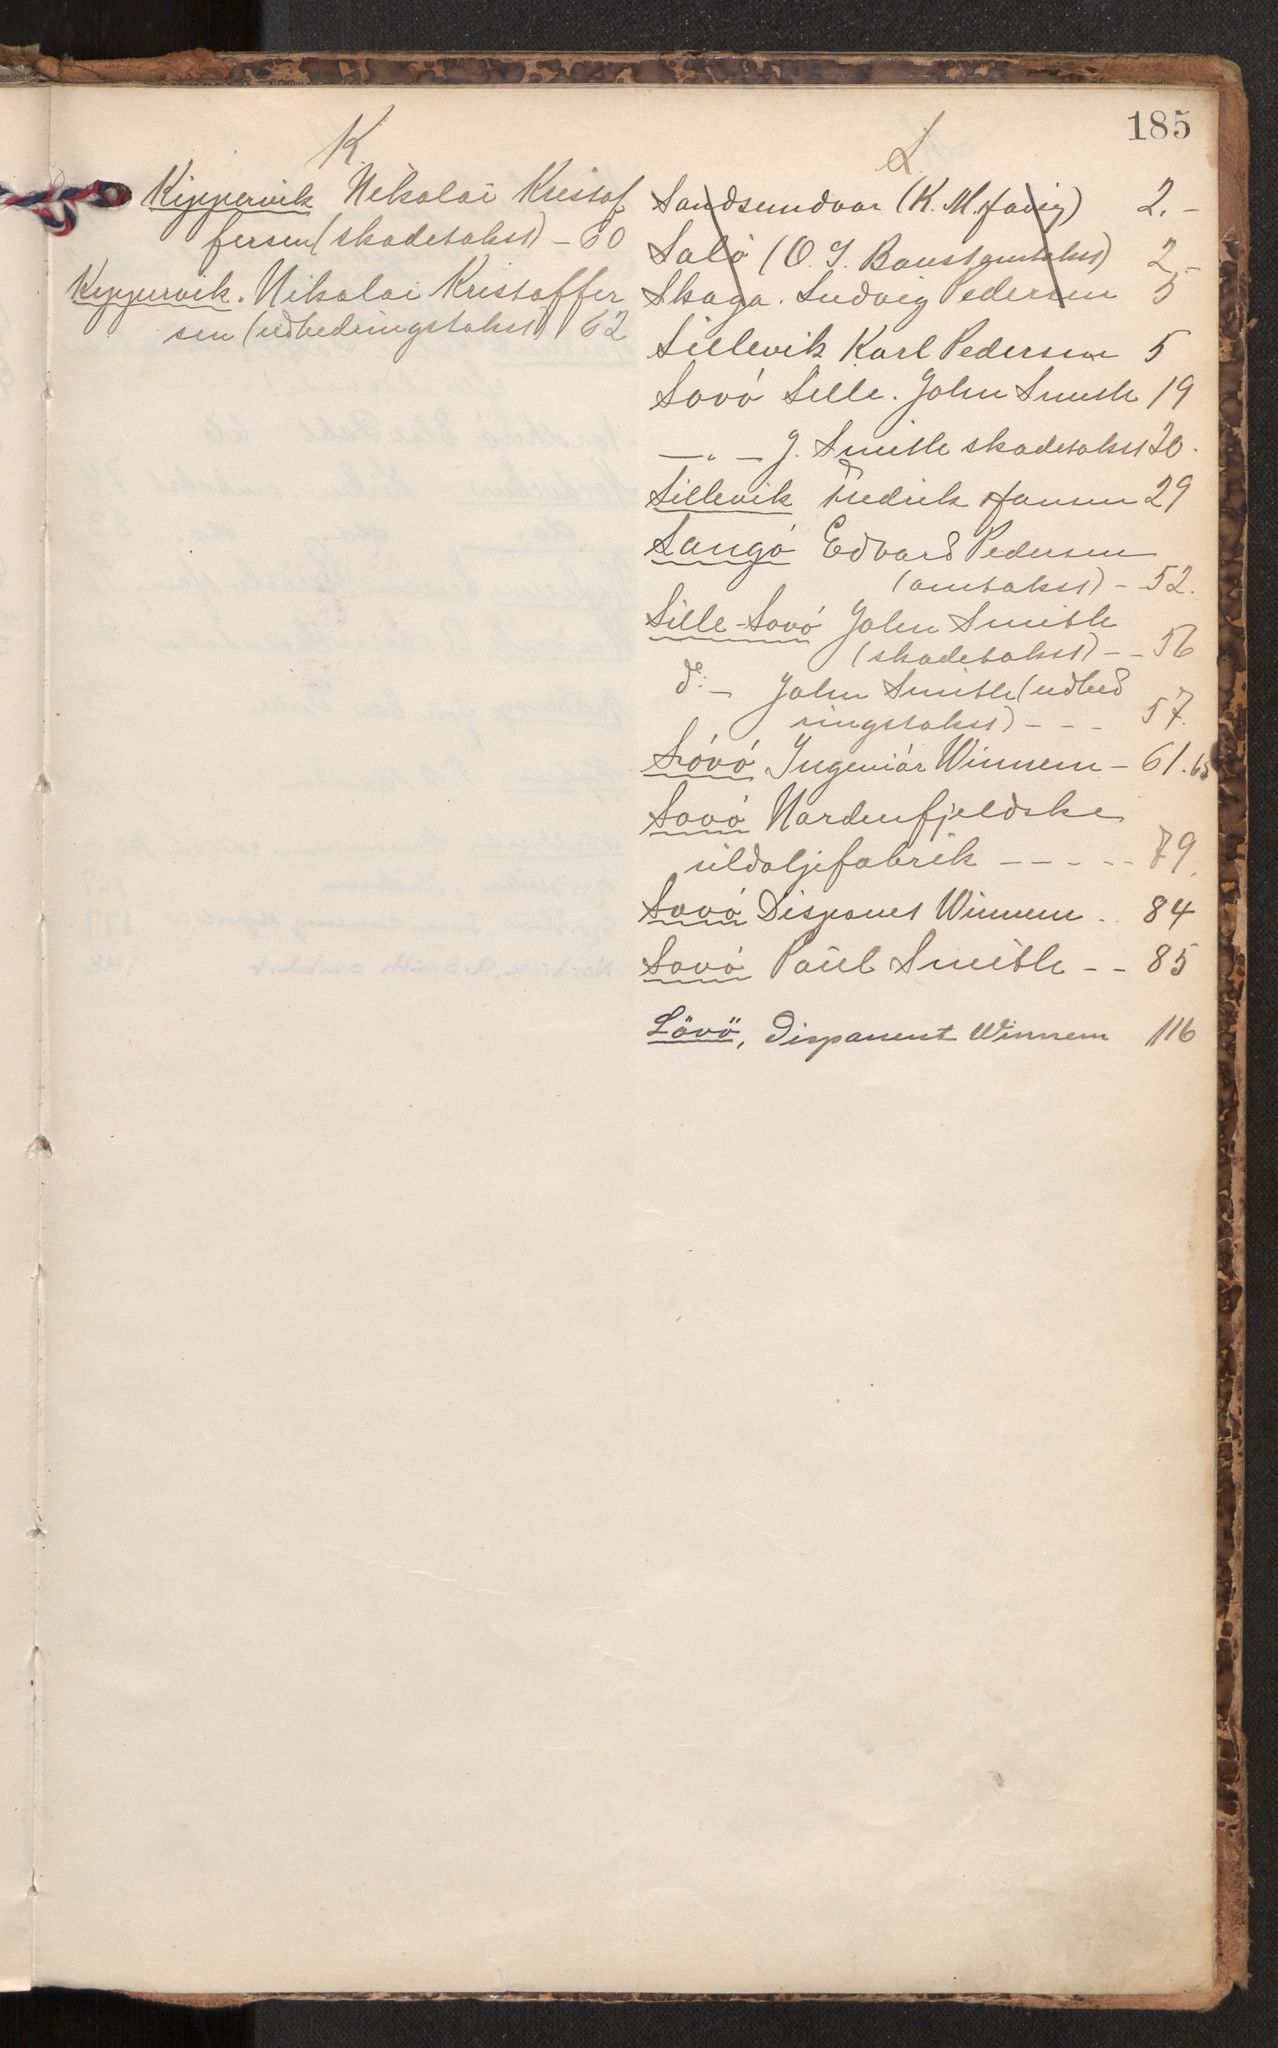 185
K.
Kippervik Nikolai Kristof
fersen (skadetakst) – 60
Kippervik. Nikolai Kristoffer
sen (udbedringstakst) 62
L.
Sandsundvær (K. M. Havig) 2.–
Salö (O. J. Baustamtakst) 2.–
Skaga. Ludvig Pedersen 5
Lillevik Karl Pedersen 5
Lovö Lille. John Smith 19
— „ — J. Smith skadetakst 20.
Lillevik Fredrik Hansen 29
Langö Edvard Pedersen
(omtakst) – 52.
Lille-Lovö John Smith
(skadetakst) – – 56
do – John Smith (udbed
ringstakst) – – – 57.
Lövö Ingeniör Winnem – 61. 65
Lovö Nordenfjeldske
sildoljefabrik – – – – – 79.
Lovö Disponet Winnem . . 84
Lovö Paul Smith – – 85
Lövö, Disponent Winnem 116